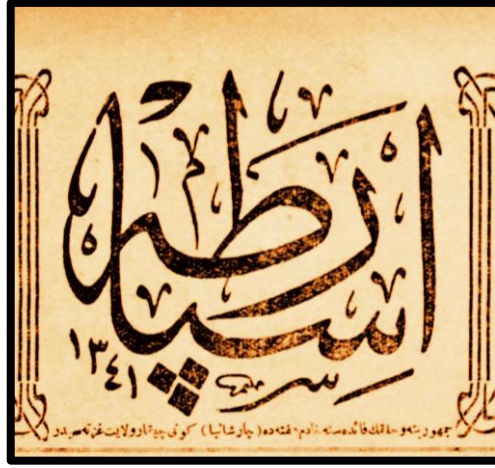 اسپارطه
١٣٤١
جمهوریته و خلقك فائده سنه خادم هفته ده ( چارشانبا ) كونی چیقار ولایت غزته سیدر